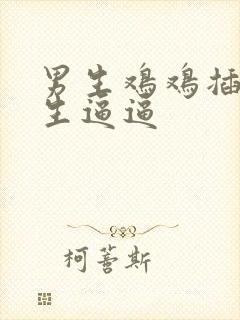 男生鸡鸡插
生逼逼
柯蓍斯